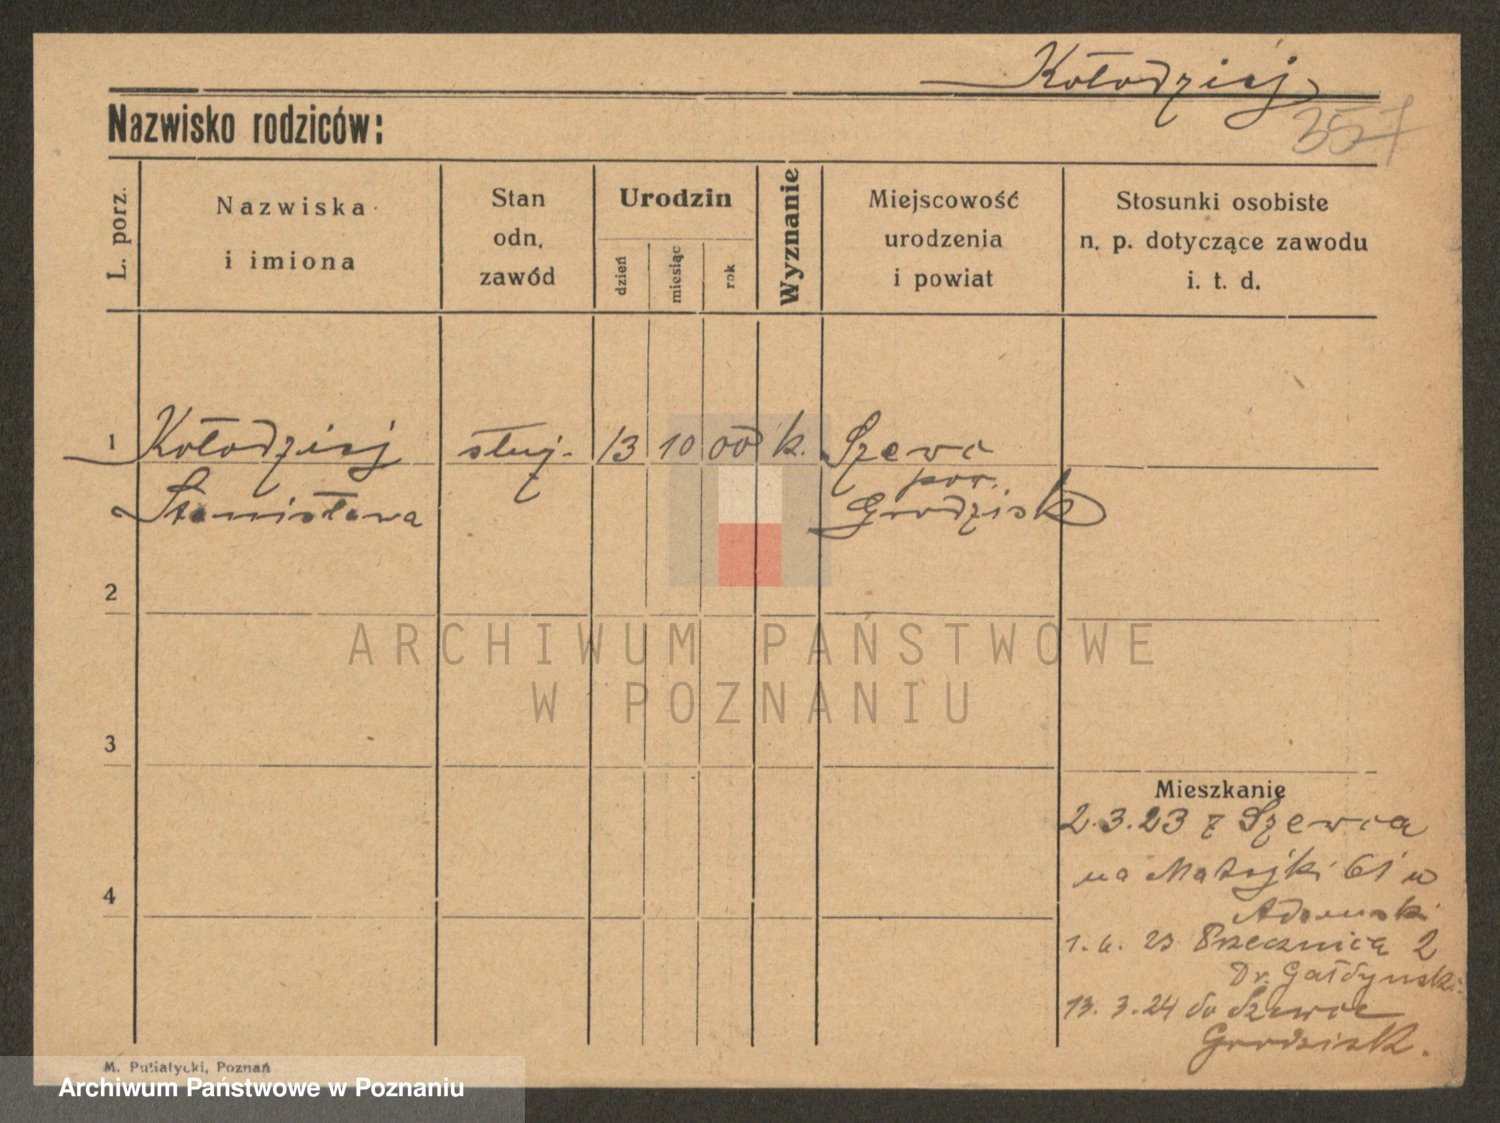 Kołodziej
357
Nazwisko rodziców:
L. porz.
Nazwiska
i imiona
Stan
odn.
zawód
Urodzin
dzień
miesiąc
rok
Wyznanie
Miejscowość
urodzenia
i powiat
Stosunki osobiste
n. p. dotyczące zawodu
i. t. d.
1 Kołodziej służ. 13 10 00 k. Szewc
pow.
Stanisława Grodzisk
2
ARCHIWUM PAŃSTWOWE
W POZNANIU
3
Mieszkanie
2.3.23 z Szewca
na Matejki 61 u
Adamski
4
1.6.23 Przecznica 2
Dr. Gałdyński
13.3.24 do Szewce
Grodzisk.
M. Putiatycki, Poznań
Archiwum Państwowe w Poznaniu